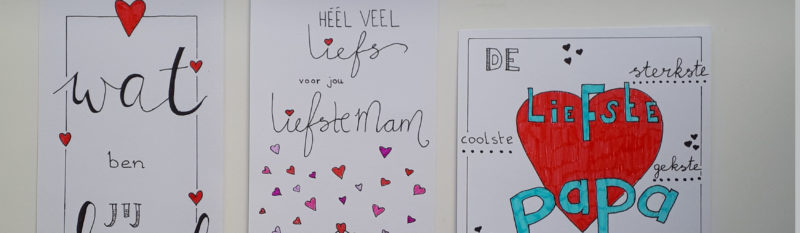 wat
ben
JIJ
HÉÉL VEEL
liefs
voor jou
liefste Mam
DE
sterkste
LIEFSTE
coolste
gekste
papa